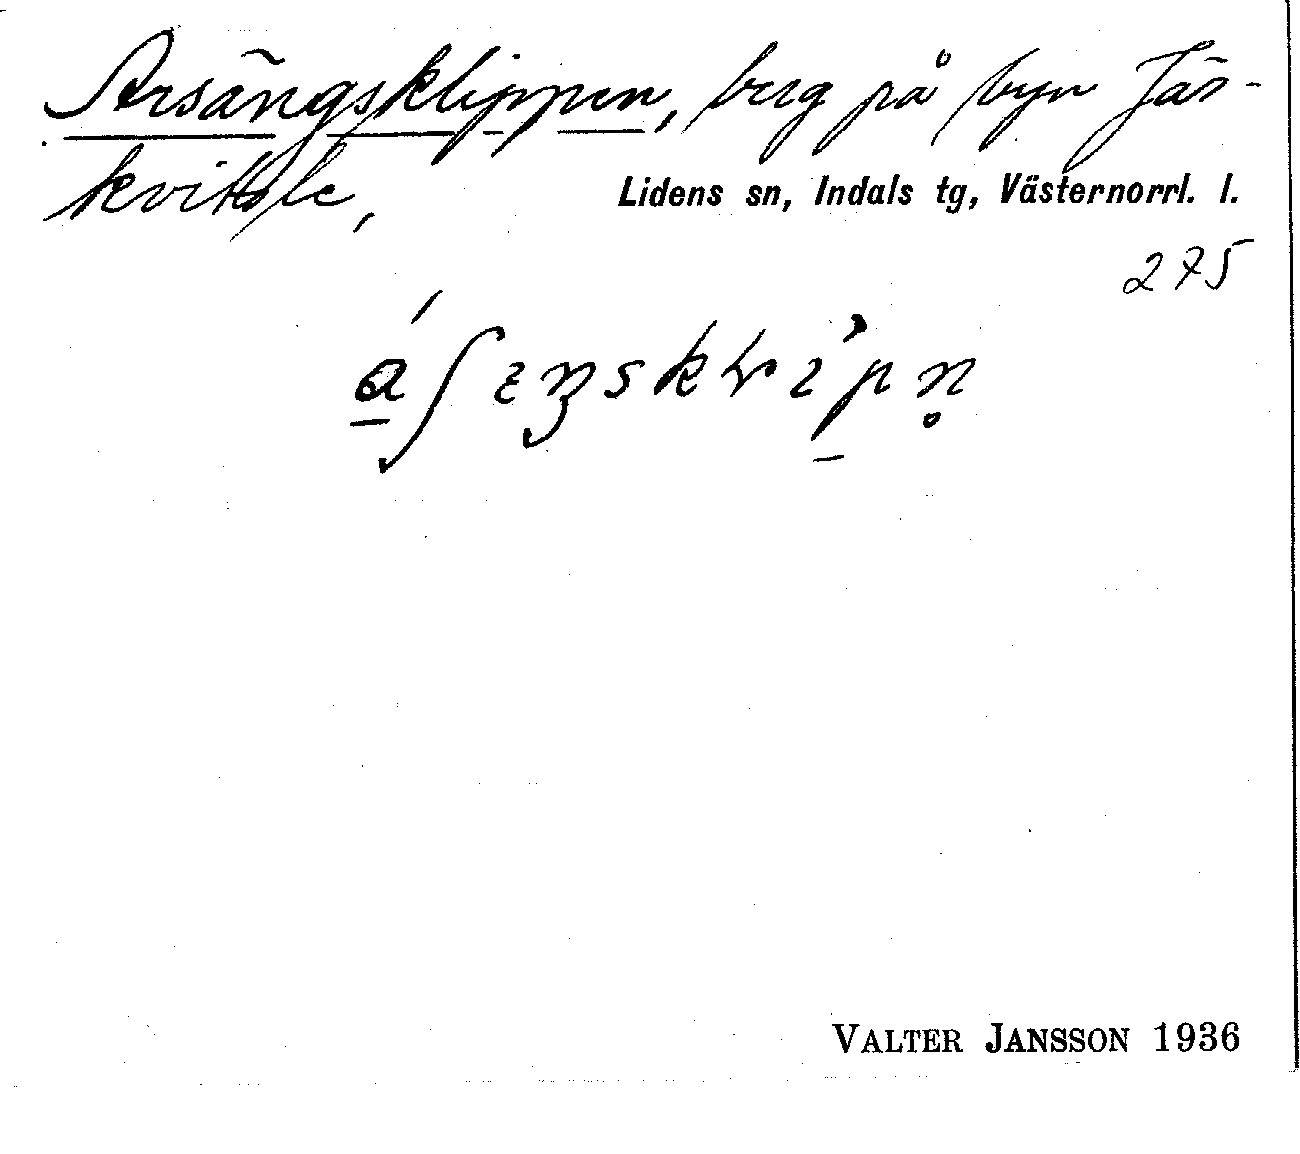 Arsängsklippen, berg på byn Jär-
kvitsle,
Lidens sn, Indals tg, Västernorrl. l.
275
VALTER JANSSON 1936